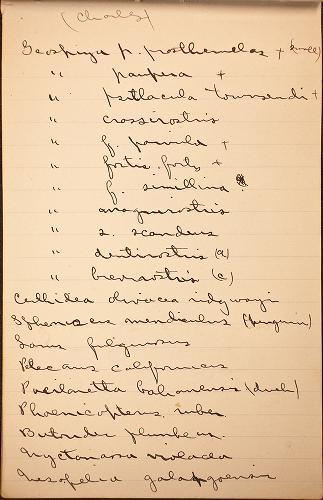 (Charles)
Geospiza p. prosthemelas + (small)
" paupera +
" psittacula townsendi +
" crassirostris
" f. parvula +
" fortis fortis +
" f. simillima ?
" magnirostris
" s. scandens
" dentirostris (a)
" brevirostris (c)
olivacea ridgwayi
Spheniscus mendiculus (penguin)
Larus fuliginosus
Pelecanus californicus
Poecilonetta bahamensis (duck)
Phoenicopterus ruber
Butorides plumbeus
Nyctanassa violacea
galapagoensis